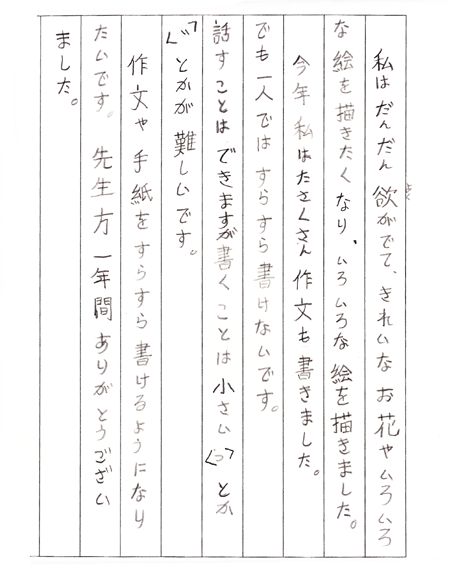 私はだんだん欲がでて、きれいなお花やいろいろ
な絵を描きたくなり、いろいろな絵を描きました。
今年私はたさくさん作文も書きました。
でも一人ではすらすら書けないです。
話すことはできますが書くことは小さい「っ」とか
「゛」とかが難しいです。
作文や手紙をすらすら書けるようになり
たいです。先生方一年間ありがとうござい
ました。